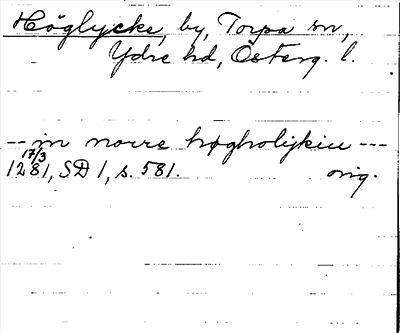 Höglycke, by, Torpa sn,
Ydre hd, Österg. l.
-- in norre høgholijkiu ---
17/3
1281, SD 1, s. 581. orig.